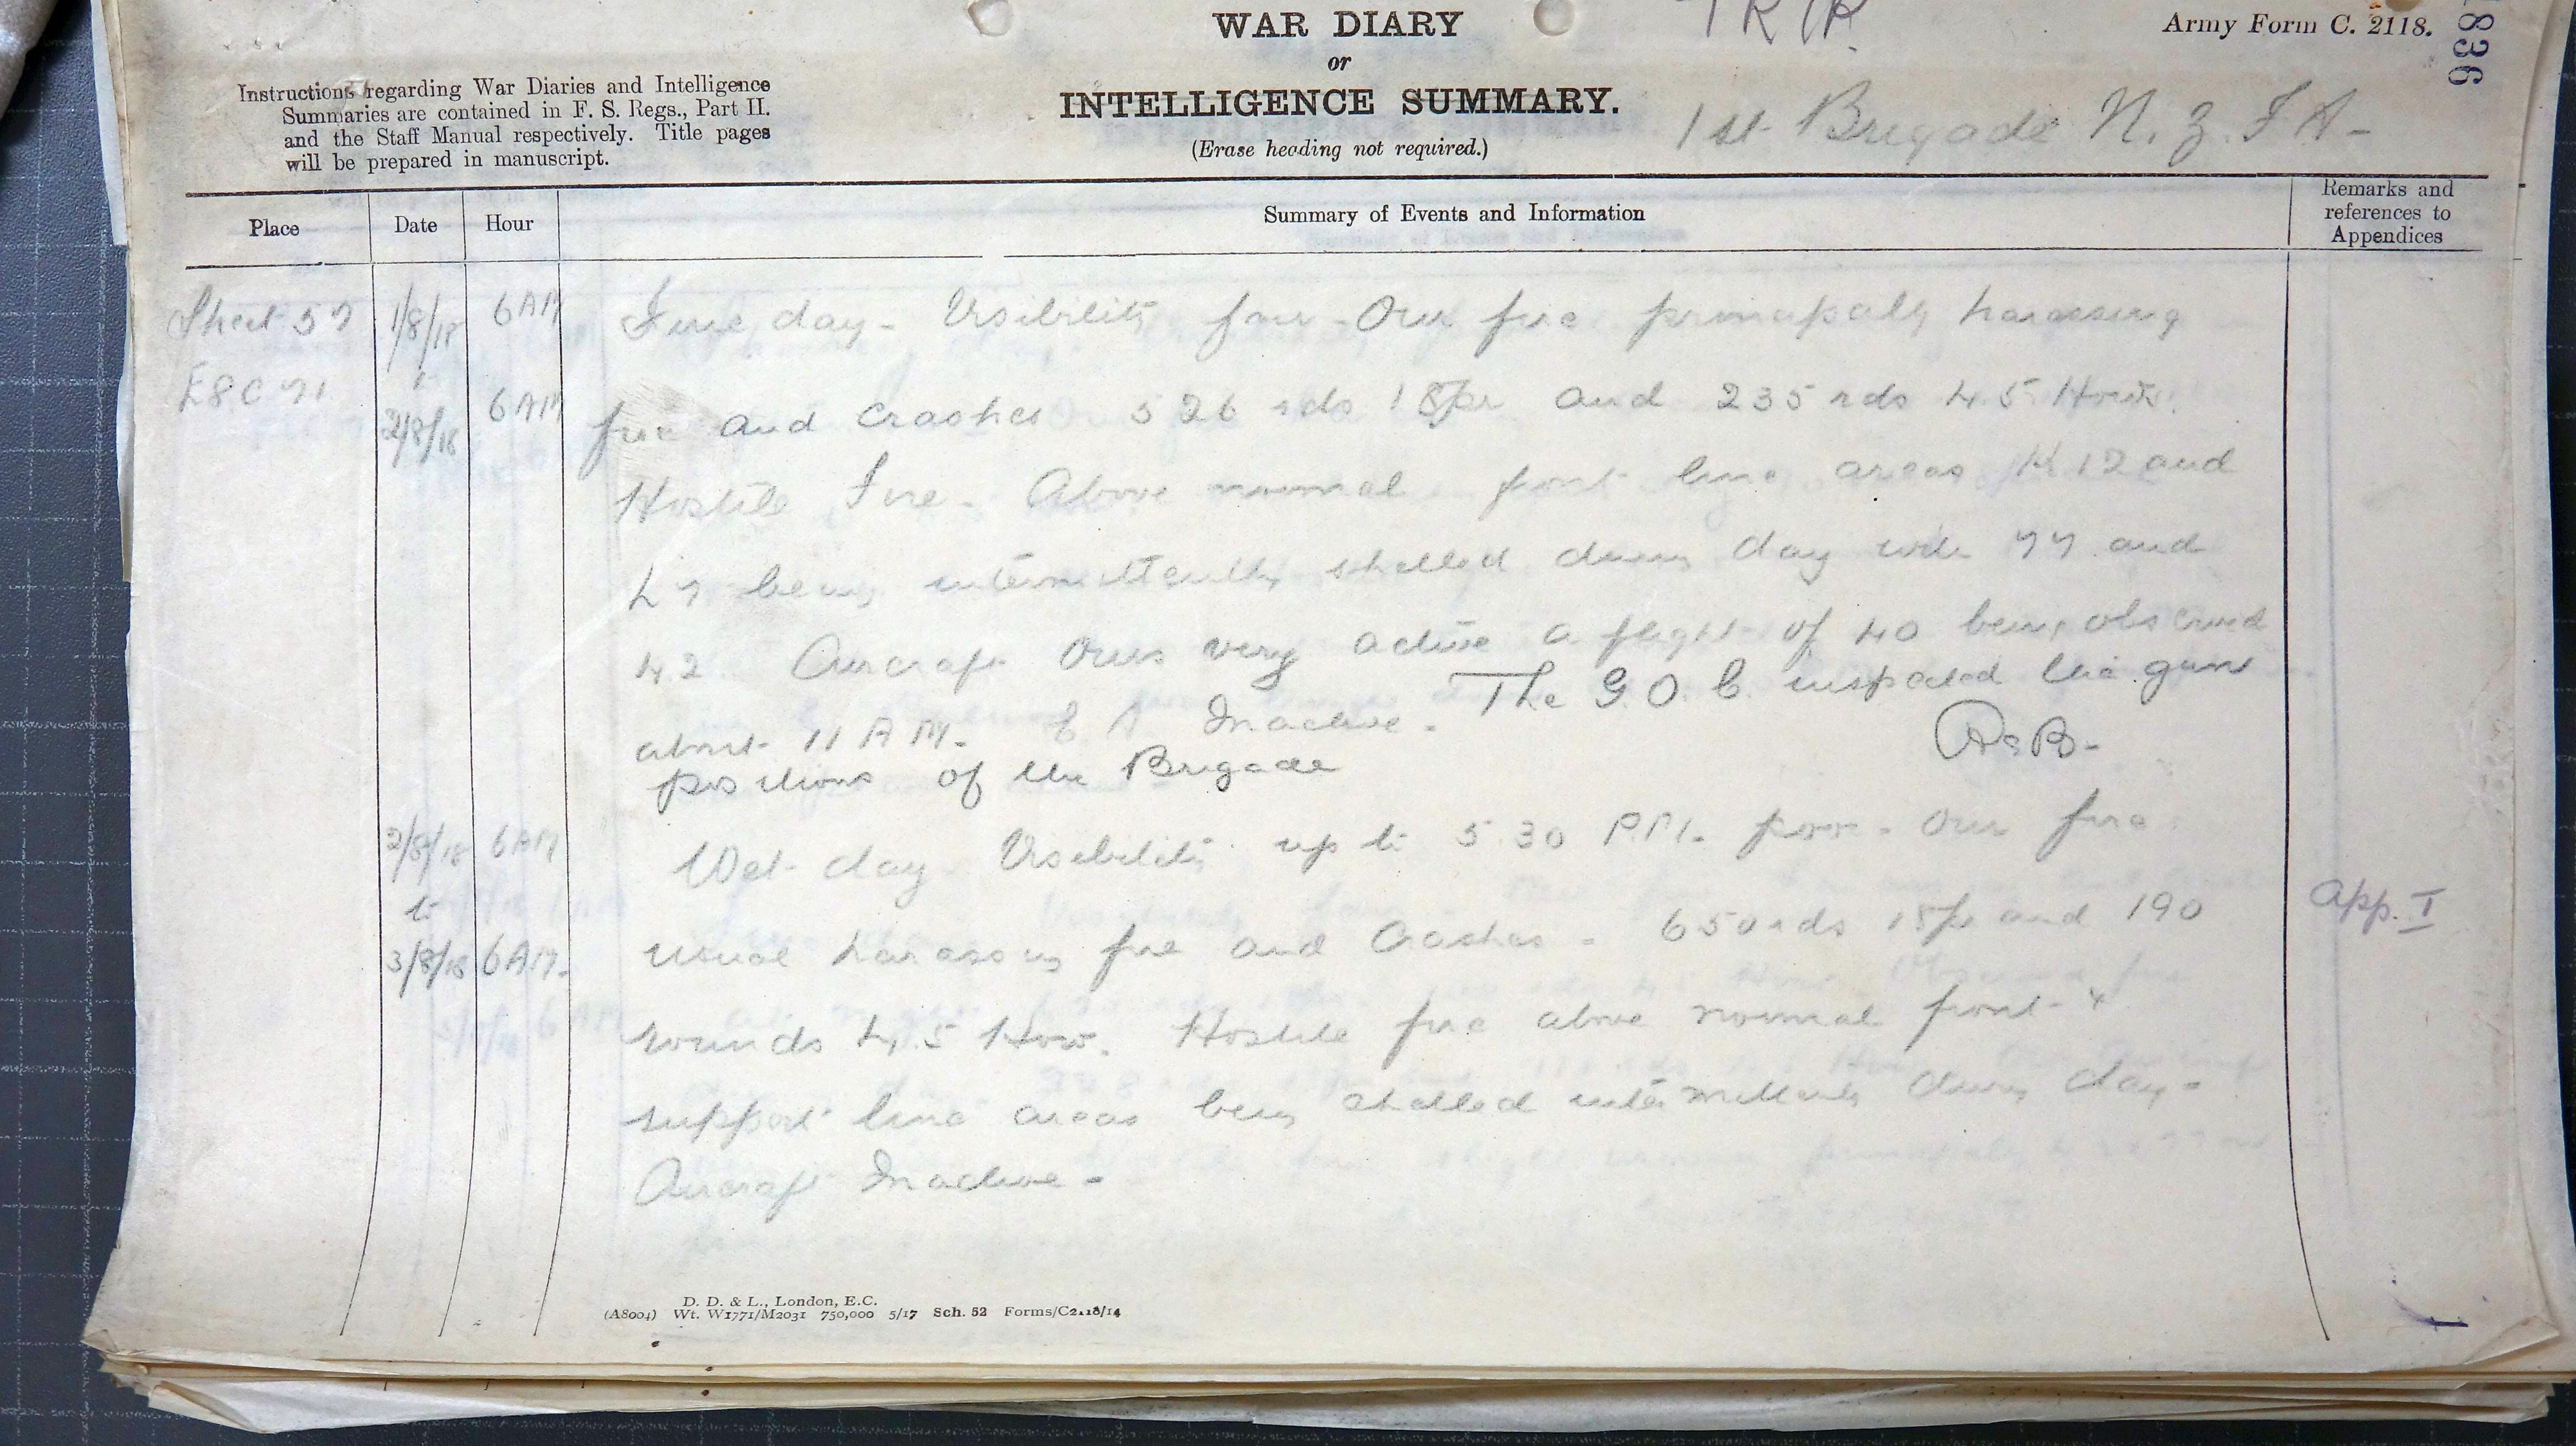 WAR DIARY
Army Form C. 2118.
or
INTELLIGENCE SUMMARY.
(Erase heading not required.)
1836
Instructions regarding War Diaries and Intelligence
Summaries are contained in F. S. Regs., Part II.
and the Staff Manual respectively. Title pages
will be prepared in manuscript.
1st Brigade N. Z. F A -
Place Date Hour Summary of Events and Information Remarks and references to Appendices
Sheet 57 1/8/18 6 AM Fine day - Visibility fair - Our fire principally harassing
E8C71 to
2/8/18 6 AM fire and crashes 526 rds 18pr and 235 rds 4.5 How.
Hostile Fire - Above normal front line areas K 12 and
L7 being intermittently shelled during day with 77 and
4.2 Aircraft Ours very active a flight of 40 being observed
about 11 A M. E A Inactive - The G. O. C. inspected the gun
positions of the Brigade
2/8/18 6 AM Wet day Visibility up to 5.30 P.M. poor - Our fire
to
3/8/18 6 AM. usual harassing fire and Crashes - 650 rds 18pr and 190 App. I
rounds 4.5 How. Hostile fire above normal front &
support line areas being shelled intermittently during day -
Aircraft Inactive -
D. D. & L., London, E.C.
(A8004) Wt. W1771/M2031 750,000 5/17 Sch. 52 Forms/C2118/14